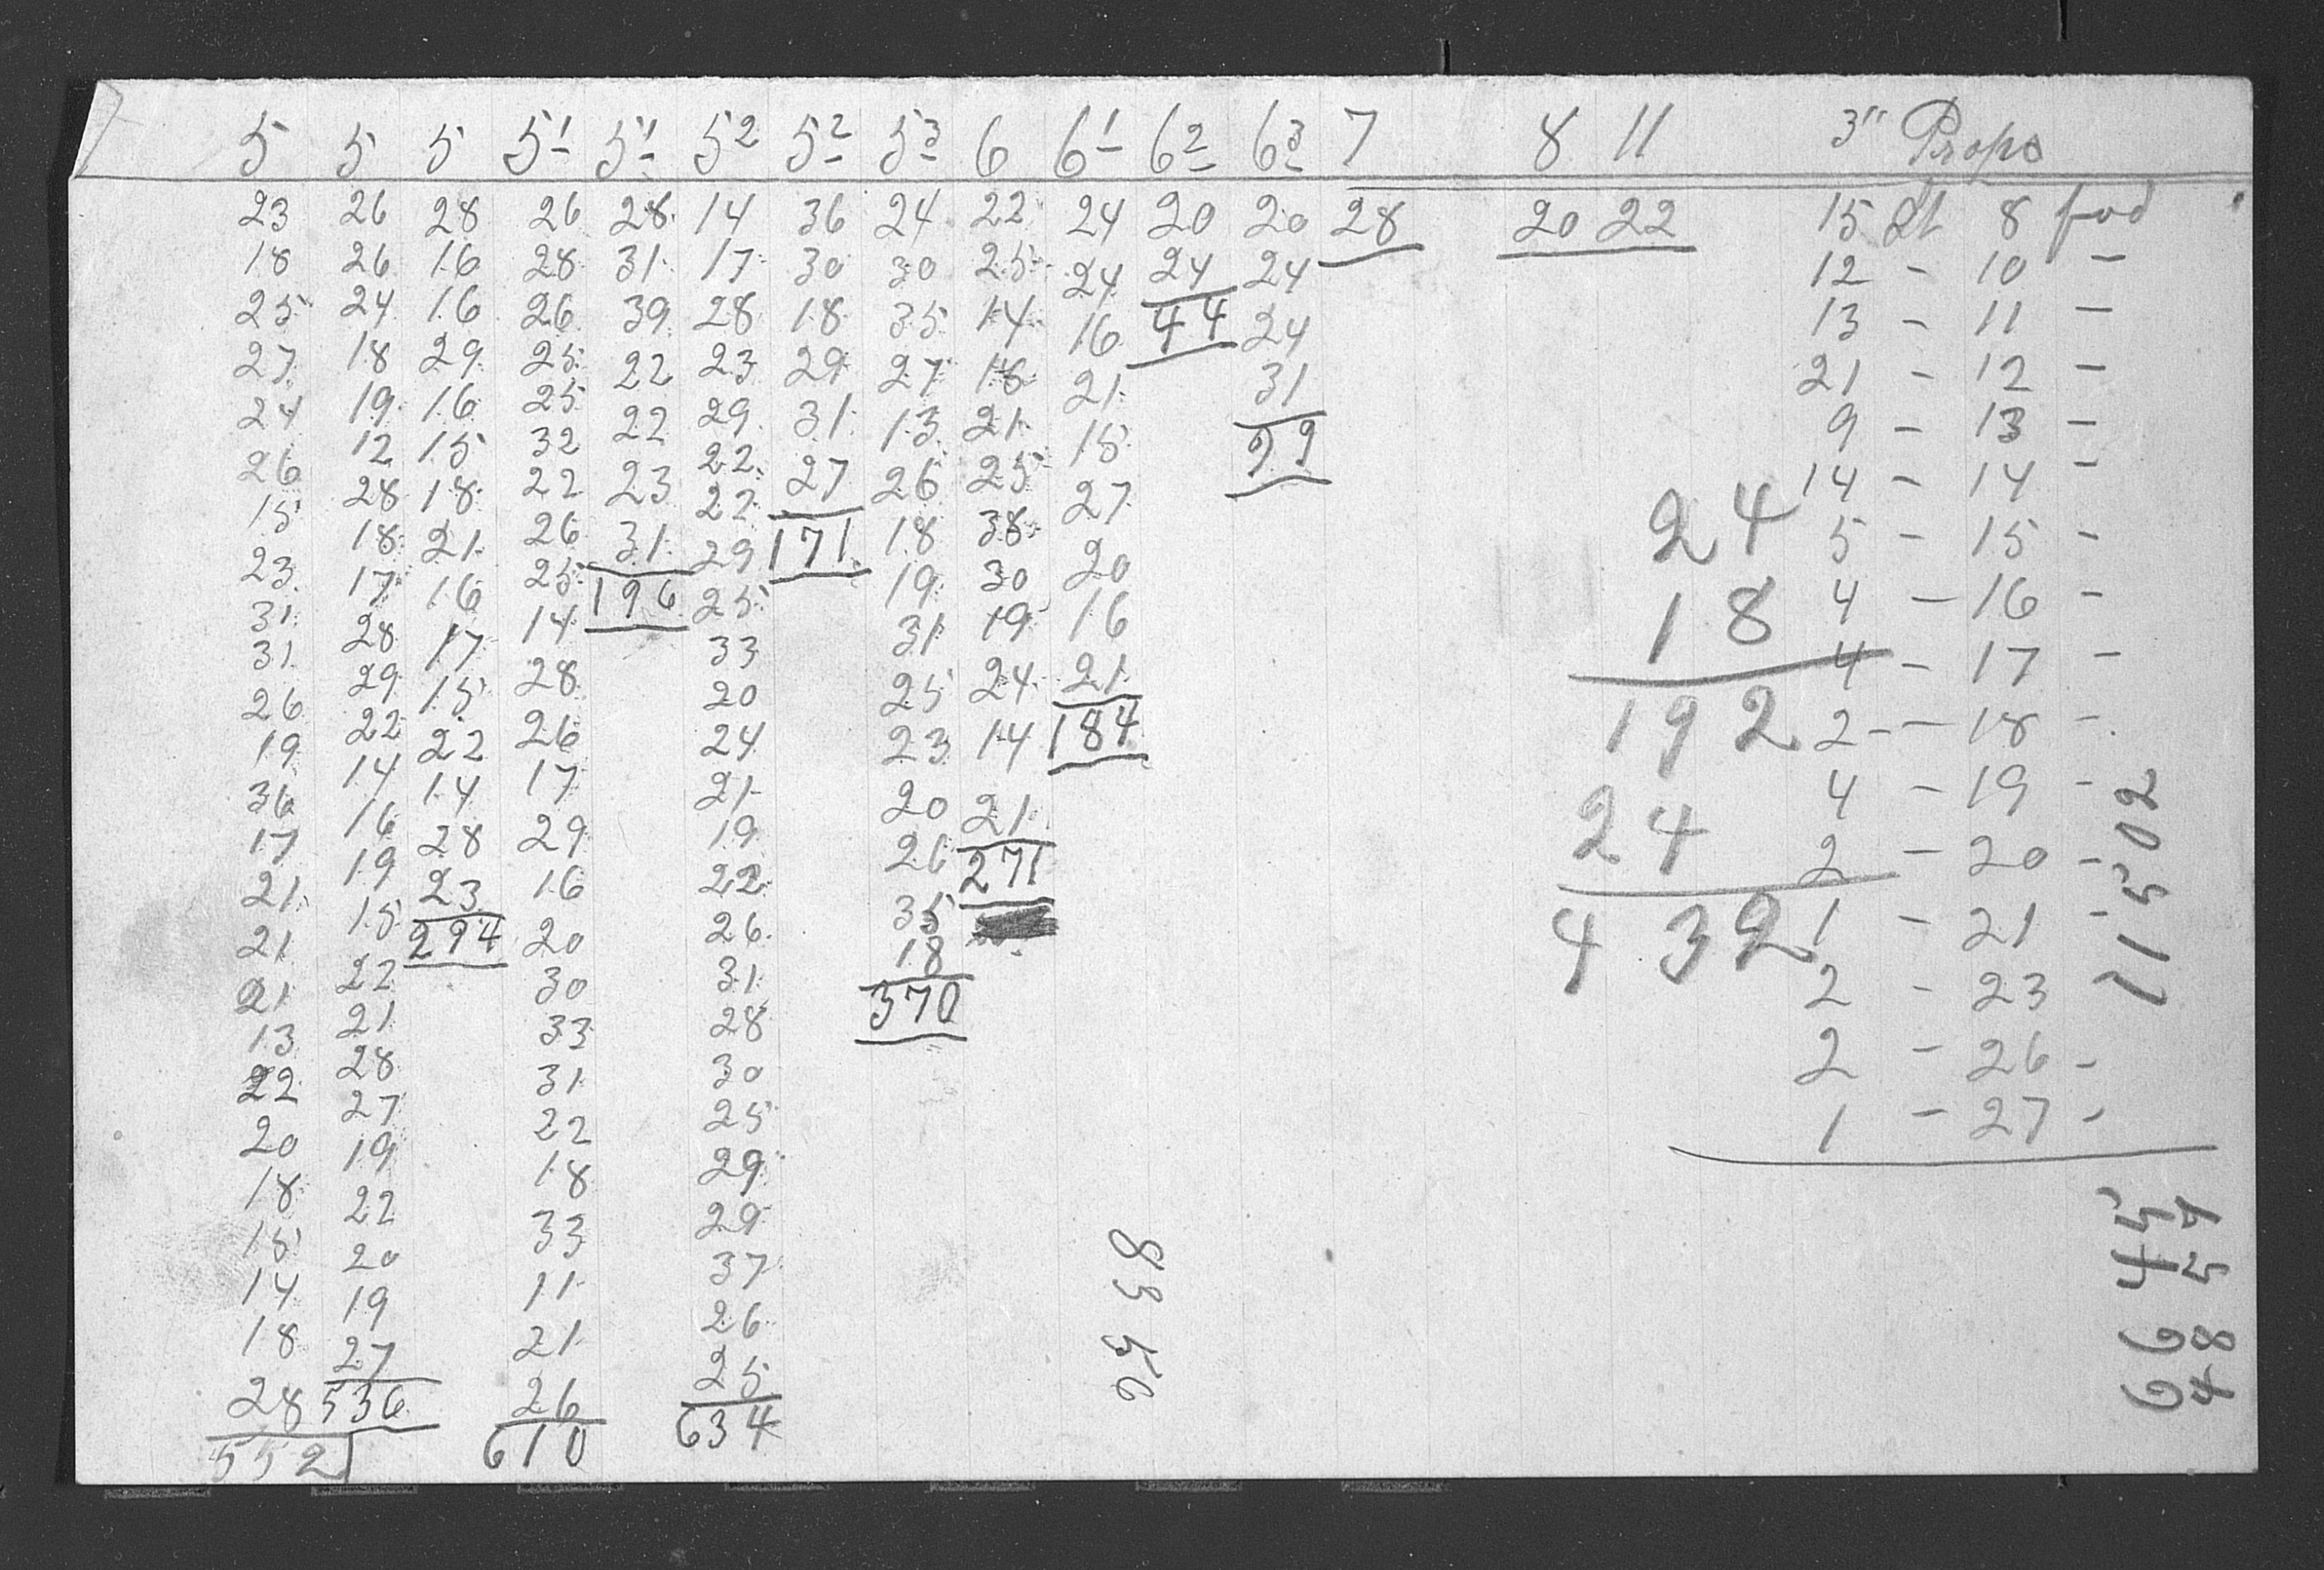 5 5 5 5 1 5 1 5 2 5 2 5 3 6 6 1 6 2 6 3 7 8 11 3" Props
23 26 28 26 28 14 36 24 22 24 20 20 28 20 22 15 St 8 fod
18 26 16 28 31 17 30 30 25 24 24 24 12 - 10 -
25 24 16 26 39 28 18 35 14 16 44 24 13 - 11 -
27 18 29 25 22 23 29 27 18 21 31 21 - 12 -
24 19 16 25 22 29 31 13 21 15 99 9 - 13 -
26 12 15 32 23 22 27 26 25 27 14 - 14 -
15 28 18 22 31 22 171 18 38 20 5 - 15 -
23 18 21 26 196 29 19 30 16 4 - 16 -
31 17 16 25 25 31 19 21 4 - 17 -
31 28 17 14 33 25 24 184 2 - 18 -
26 29 15 28 20 23 14 4 - 19 -
19 22 22 26 24 20 21 2 - 20 -
36 14 14 17 21 26 271 1 - 21 -
17 16 28 29 19 35 2 - 23
21 19 23 16 22 18 2 - 26 -
21 15 294 20 26 370 1 - 27 -
21 22 30 31
13 21 33 28
22 28 31 30
20 27 22 25
18 19 18 29
15 22 33 29
14 20 11 37
18 19 21 26
28 27 26 25
552 536 610 634
24
18
192
24
432
71502